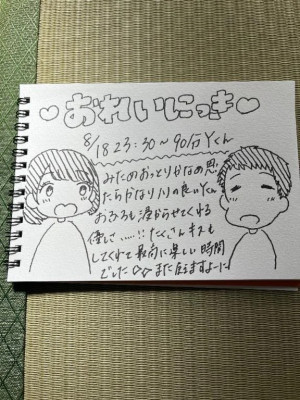 ♡おれいにっき♡
8/18 23:30～90分Yくん
みためおっとりかなの思
たらかなりノリの良いYくん
おふろも浸からせてくれる
優しさ……!! たくさんキスも
してくれて最高に楽しい時間
でした♡♡また会えますよーに